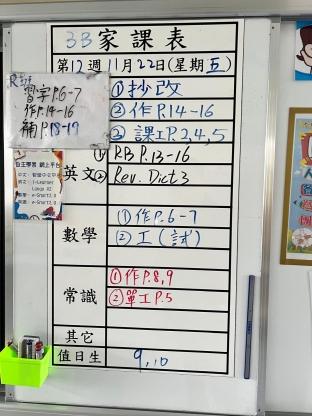 3B 家課表
第12週11月22日(星期五)
習字P.6-7
作P.14-16
補P.18-19
①抄改
②作P.14-16
③課工P.2,4,5
英文
①RB P.13-16
②Rev. Dict 3
自主學習 網上平台
數學
①作P.6-7
②工(試)
常識
①作P.8,9
②單工P.5
其它
值日生
9,10